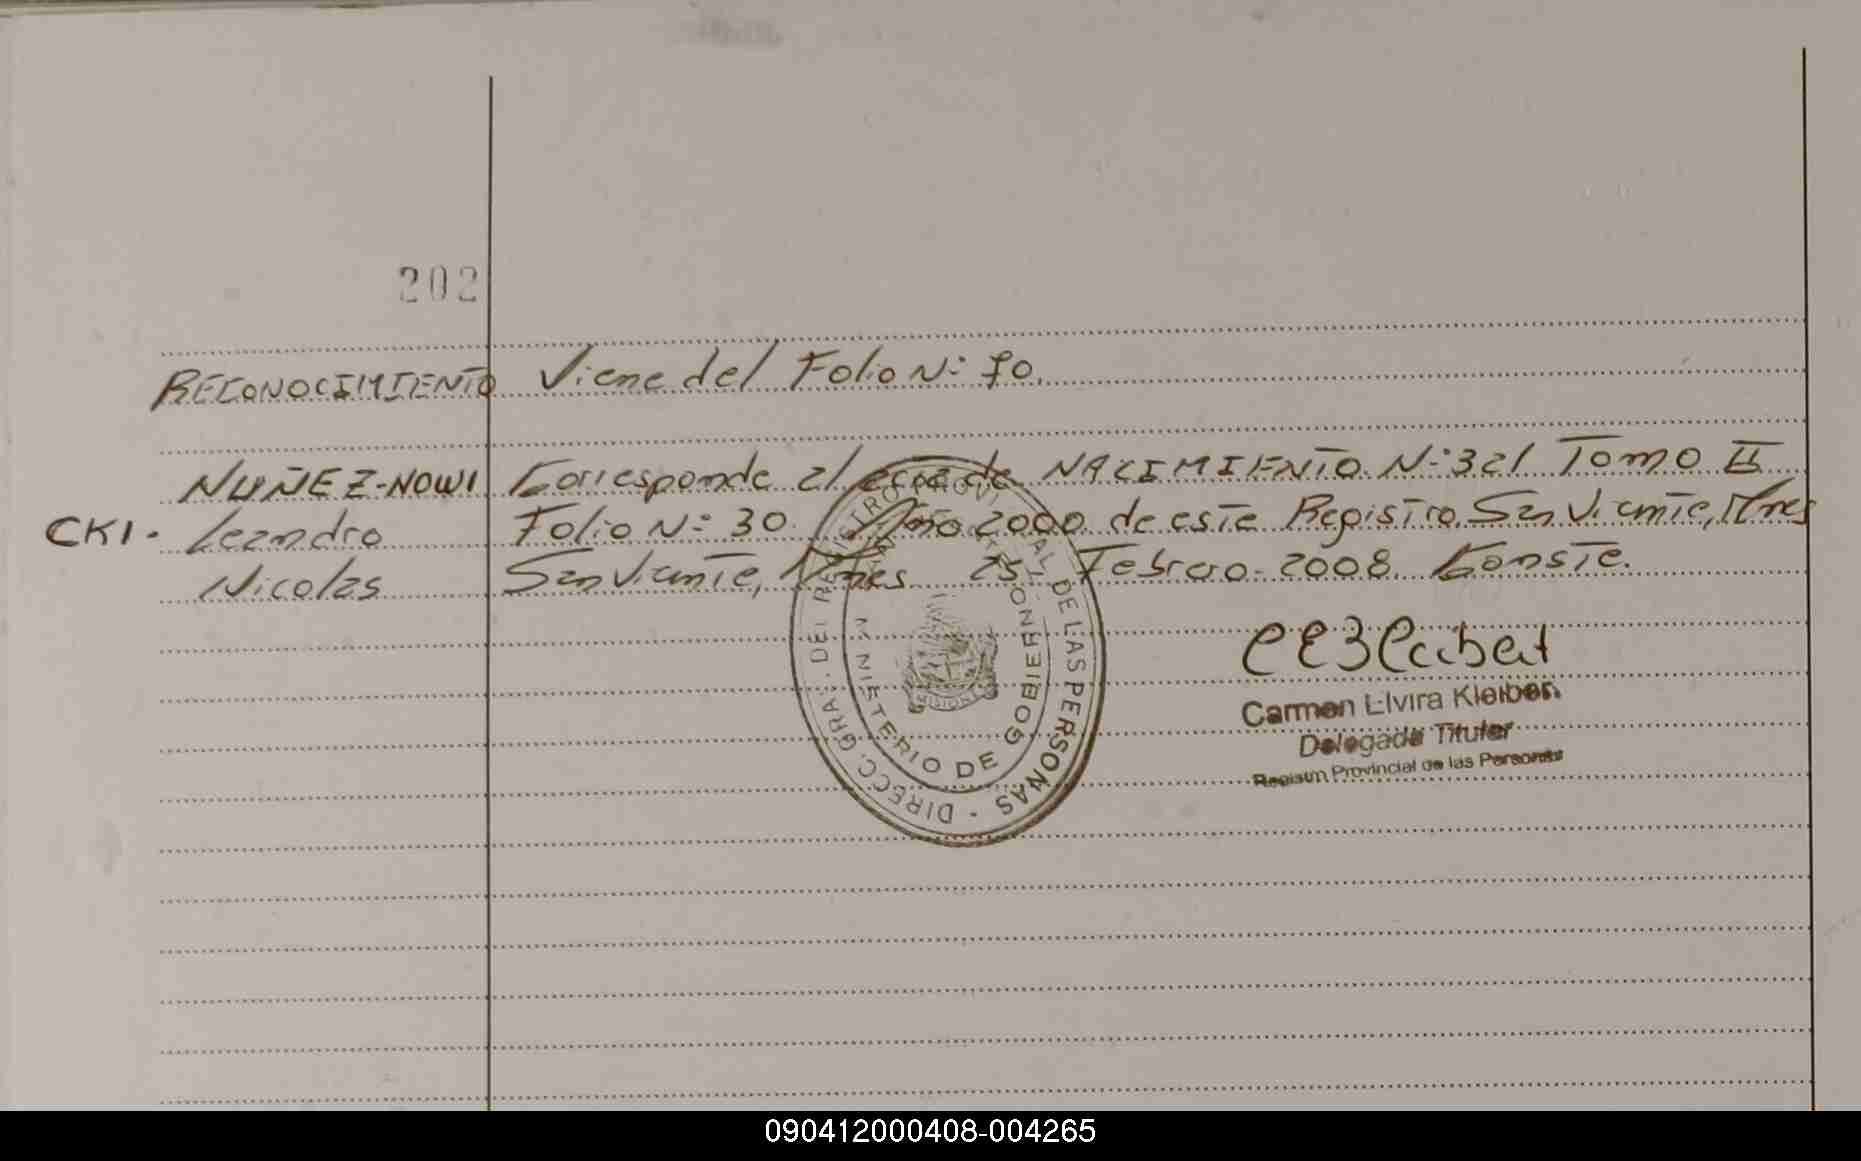 202
RECONOCIMIENTO Viene del Folio Nº 70.
NUÑEZ-NOWI Corresponde al acta de NACIMIENTO Nº 321 Tomo II
CKI. Leandro Folio Nº 30. Año 2000 de este Registro San Vicente, Mnes
Nicolas San Vicente, Mnes 25 Febrero 2008 Conste.
Carmen Elvira Kleiber
Delegada Titular
Registro Provincial de las Personas
DIRECC. GRAL. DEL REGISTRO PROVINCIAL DE LAS PERSONAS
MINISTERIO DE GOBIERNO
MISIONES
090412000408-004265